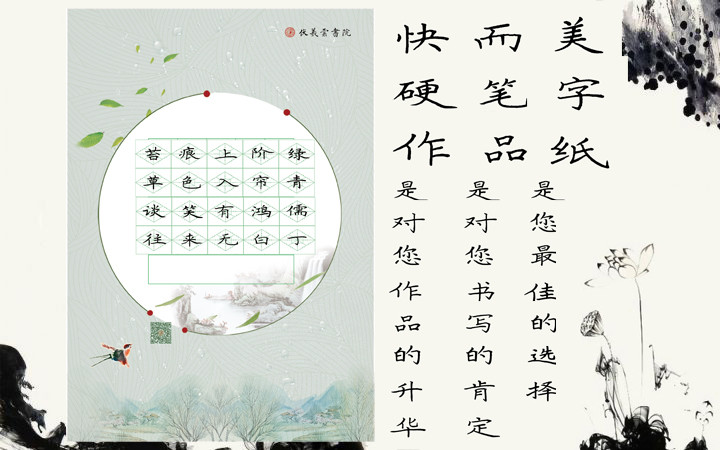 伏羲雲書院
苔痕上阶绿
草色入帘青
谈笑有鸿儒
往来无白丁
快而美
硬笔字
作品纸
是您最佳的选择
是对您书写的肯定
是对您作品的升华